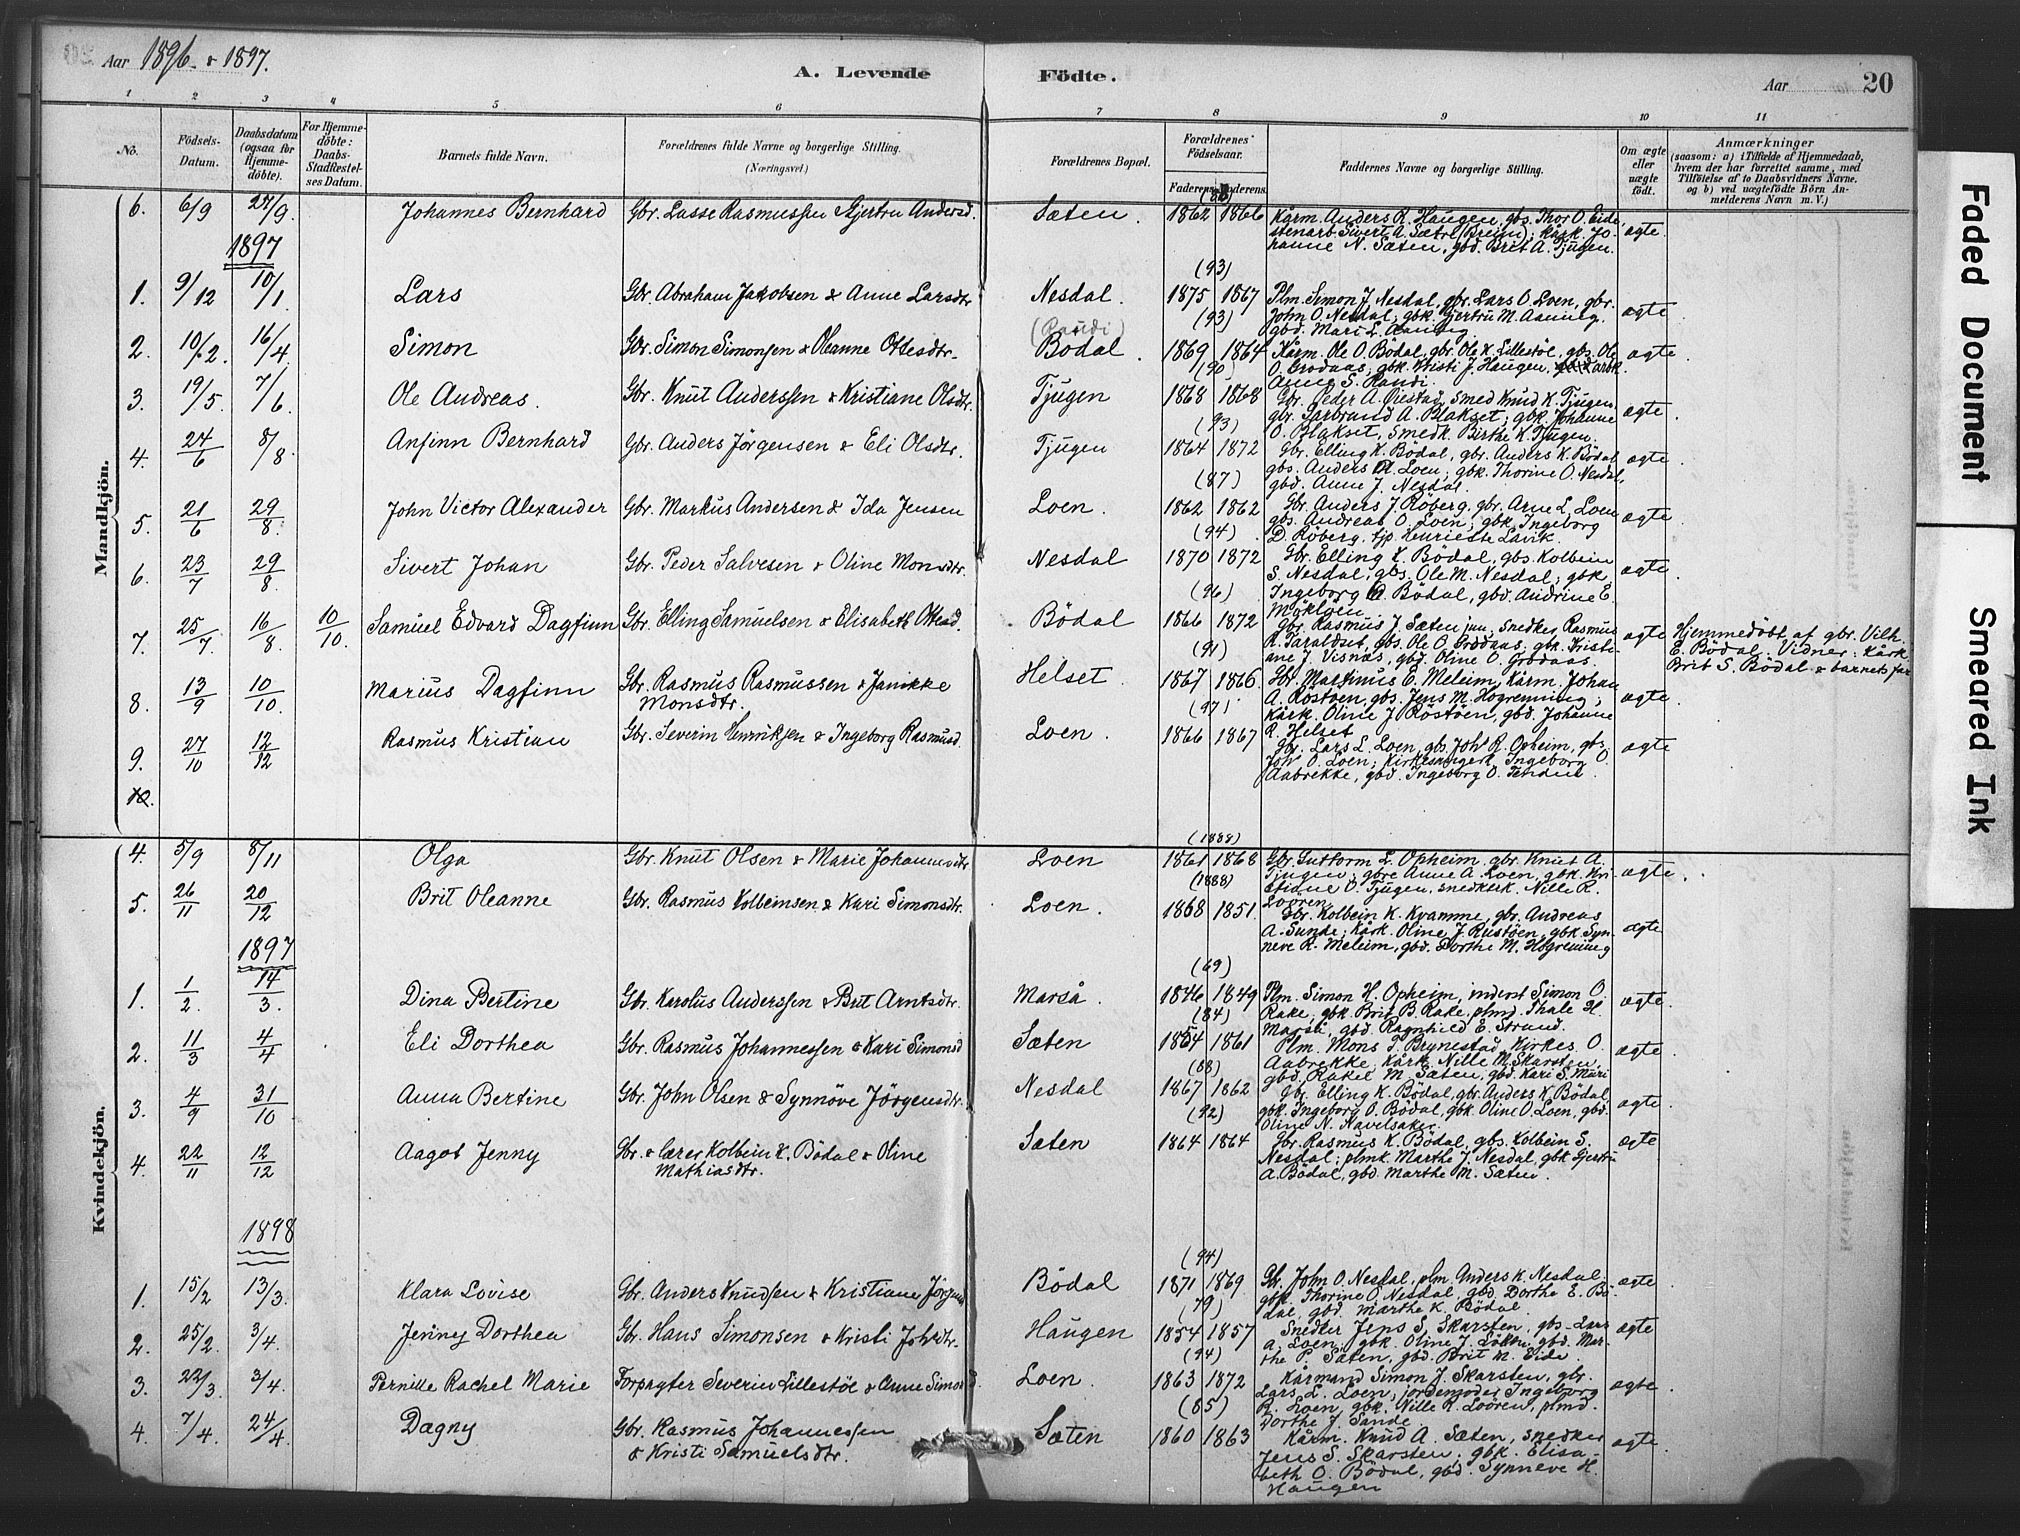 Aar 1896 & 1897.
A. Levende Födte.
Aar 20
1 2 3 4 5 6 7 8 9 10 11
No. Födsels-Datum. Daabsdatum (ogsaa for Hjemmedöbte). For Hjemmedöbte: Daabs-Stadfæstelses Datum. Barnets fulde Navn. Forældrenes fulde Navne og borgerlige Stilling. (Næringsvei.) Forældrenes Bopæl. Forældrenes Födselsaar. Faddernes Navne og borgerlige Stilling. Om ægte eller uægte födt. Anmærkninger (saasom: a) i Tilfælde af Hjemmedaab, hvem der har forrettet samme, med Tilföielse af to Daabsvidners Navne, og b) ved uægtefödte Börn Anmelderens Navn m. V.)
Faderens. Moderens.
Mandkjön.
6. 6/9 27/9. Johannes Bernhard Gbr. Lasse Rasmussen & Gjertru Andersd. Sæten. 1862 1866 Kårm. Anders R. Haugen, gbs. Thor O. Eide,
stenarb. Sivert A. Sætre (Breim); kårk. Johanne N. Sæten, gbd. Brit A. Tjugen. ægte.
1897
(93)
1. 9/12 10/1 Lars Gbr. Abraham Jakobsen & Anne Larsdtr Nesdal. 1875 1867 Plm. Simon J. Nesdal, gbr. Lars O. Loen, gbr.
John O. Nesdal; gbk. Gjertru M. Aaning,
gbd. Mari L. Aaning ægte.
(93)
(Raudi)
2. 10/2. 16/4 Simon Gbr. Simon Simonsen & Oleanne Ottesdtr. Bödal. 1869 1864 Kårm. Ole O. Bödal, gbr. Ole K. Lillestöl, gbs. Ole
O. Grodaas; gbk. Kristi J. Haugen, kårk.
Anne S. Raudi. ægte.
(90)
3. 19/5. 7/6 Ole Andreas. Gbr. Knut Anderssen & Kristiane Olsdtr. Tjugen 1868 1868 Gbr. Peder A. Gjestad, smed Knud K. Tjugen,
gbr. Tarbrand A. Blakset; gbk. Johanne
O. Blakset, smedk. Birthe K. Tjugen. ægte.
(93)
4. 24/6 8/8 Anfinn Bernhard Gbr. Anders Jörgensen & Eli Olsdtr. Tjugen 1864 1872 Gbr. Elling K. Bödal, gbr. Anders K. Bödal,
gbs. Anders A. Loen; gbk. Thorine O. Nesdal,
gbd. Anne J. Nesdal. ægte.
(87)
5. 21/6 29/8. John Victor Alexander Gbr. Markus Andersen & Ida Jensen Loen. 1862 1862 Gbr. Anders J. Röberg, gbr. Arne L. Loen
gbs. Andreas O. Loen; gbk. Ingeborg
D. Röberg, tjp. Henriette Lavik. ægte.
(94)
6. 23/7 29/8 Sivert Johan Gbr. Peder Salvesen & Oline Monsdtr. Nesdal 1870 1872 Gbr. Elling K. Bödal, gbs. Kolbein
S. Nesdal, gbs. Ole M. Nesdal; gbk.
Ingeborg O. Bödal, gbd. Andrine E.
Möklgen ægte.
(96)
7. 25/7. 16/8. 10/10. Samuel Edvard Dagfinn Gbr. Elling Samuelsen & Elisabeth Ottesd. Bödal 1866 1872 gbr. Rasmus J. Sæten jun., snedker Rasmus
R. Taraldset, gbs. Ole O. Grodaas, gbk. Kristiane J. Visnæs, gbd. Oline O. Grodaas. ægte Hjemmedöbt af gbr. Vilh.
E. Bödal. Vidner: Kårk
Brit S. Bödal & barnets far
(91)
8. 13/9 10/10. Marius Dagfinn Gbr. Rasmus Rasmussen & Janikke
Monsdtr. Helset. 1867 1866. Gbr. Martinus E. Meleim, kårm. Johan
A. Röstöen, gbs. Jens M. Hogrenning;
kårk. Oline J. Röstöen, gbd. Johanne
R. Helset ægte.
(97)
9. 27/10 12/12 Rasmus Kristian Gbr. Severin Henriksen & Ingeborg Rasmusd. Loen. 1866 1867 Gbr. Lars L. Loen, gbs. Joh. R. Opheim, gbs.
Joh. O. Loen; kirkesangerk. Ingeborg O.
Aabrekke, gbd. Ingeborg O. Tenden. ægte
10.
Kvindekjön.
(1888)
4. 5/9 8/11 Olga Gbr. Knut Olsen & Marie Johannesdtr Loen 1861 1868 Gbr. Guttorm L. Opheim, gbr. Knut A.
Tjugen; gbre Anne A. Loen, gbk. Kristiane O. Tjugen, snedkerk. Nille R.
Looren. ægte.
(1888)
5. 26/11 20/12 Brit Oleanne Gbr. Rasmus Kolbeinsen & Kari Simonsdtr. Loen. 1868 1851. Gbr. Kolbein K. Kvamme, gbr. Andreas
A. Sunde; kårk. Oline J. Rustöen, gbk. Synneve R. Meleim, gbd. Dorthe M. Hogrenning ægte
1897
(69)
1. 1/2. 14/3. Dina Bertine Gbr. Karolus Anderssen & Brit Arntsdtr. Marså. 1846 1849 Plm. Simon H. Opheim, inderst Simon O.
Rake; gbk. Brit B. Rake, plmd. Thale H.
Marså, gbd. Ragnhild E. Strand. ægte.
(84)
2. 11/3 4/4 Eli Dorthea Gbr. Rasmus Johannessen & Kari Simonsd Sæten 1854 1861 Plm. Mons T. Brynestad, kirkes. O.
Aabrekke, kårk. Nille M. Skarsten,
gbd. Rakel M. Sæten, gbd. Kari S. Muri ægte.
(88)
3. 4/9 31/10 Anna Bertine Gbr. John Olsen & Synnöve Jörgensdtr. Nesdal 1867 1862 Gbr. Elling K. Bödal, gbr. Anders K. Bödal,
gbk. Ingeborg O. Bödal, gbk. Oline O. Loen, gbd.
Oline N. Navelsaker. ægte.
(92)
4. 22/11 12/12 Aagot Jenny Gbr. & lærer Kolbein K. Bödal & Oline
Mathiasdtr. Sæten 1864 1864 Gbr. Rasmus K. Bödal, gbs. Kolbein S.
Nesdal; plmk. Marthe J. Nesdal, gbk Gjertru
A. Bödal, gbd. Marthe M. Sæten. ægte
1898
(94)
1. 15/2 13/3. Klara Lovise Gbr. Anders Knudsen & Kristiane Jörgensd Bödal 1871 1869 Gbr. John O. Nesdal, plm. Anders K. Nesdal.
gbk. Thorine O. Nesdal, gbd. Dorthe E. Bödal, gbd. Marthe K. Bödal. ægte
(79)
2. 25/2. 3/4. Jenny Dorthea Gbr. Hans Simonsen & Kristi Johsdtr. Haugen 1854 1857 Snedker Jens S. Skarsten, gbs. Lars
A. Loen; gbk. Oline J. Löken, gbd. Marthe P. Sæten, gbd. Brit M. Eide. ægte
(94)
3. 22/3. 3/4. Pernille Rachel Marie Forpagter Severin Lillestöl & Anne Simonsd. Loen 1863 1872 Kårmand Simon J. Skarsten, gbr.
Lars L. Loen; jordemoder Ingeborg
R. Loen, gbk. Nille R. Looren, plmd.
Dorthe J. Sande. ægte.
(85)
4. 7/4. 24/4. Dagny Gbr. Rasmus Johannessen
& Kristi Samuelsdtr. Sæten 1860 1863 Kårm. Knud A. Sæten, snedker
Jens S. Skarsten; gbk. Elisabeth O. Bödal, gbd. Synneve H.
Haugen ægte.
Faded Document
Smeared Ink